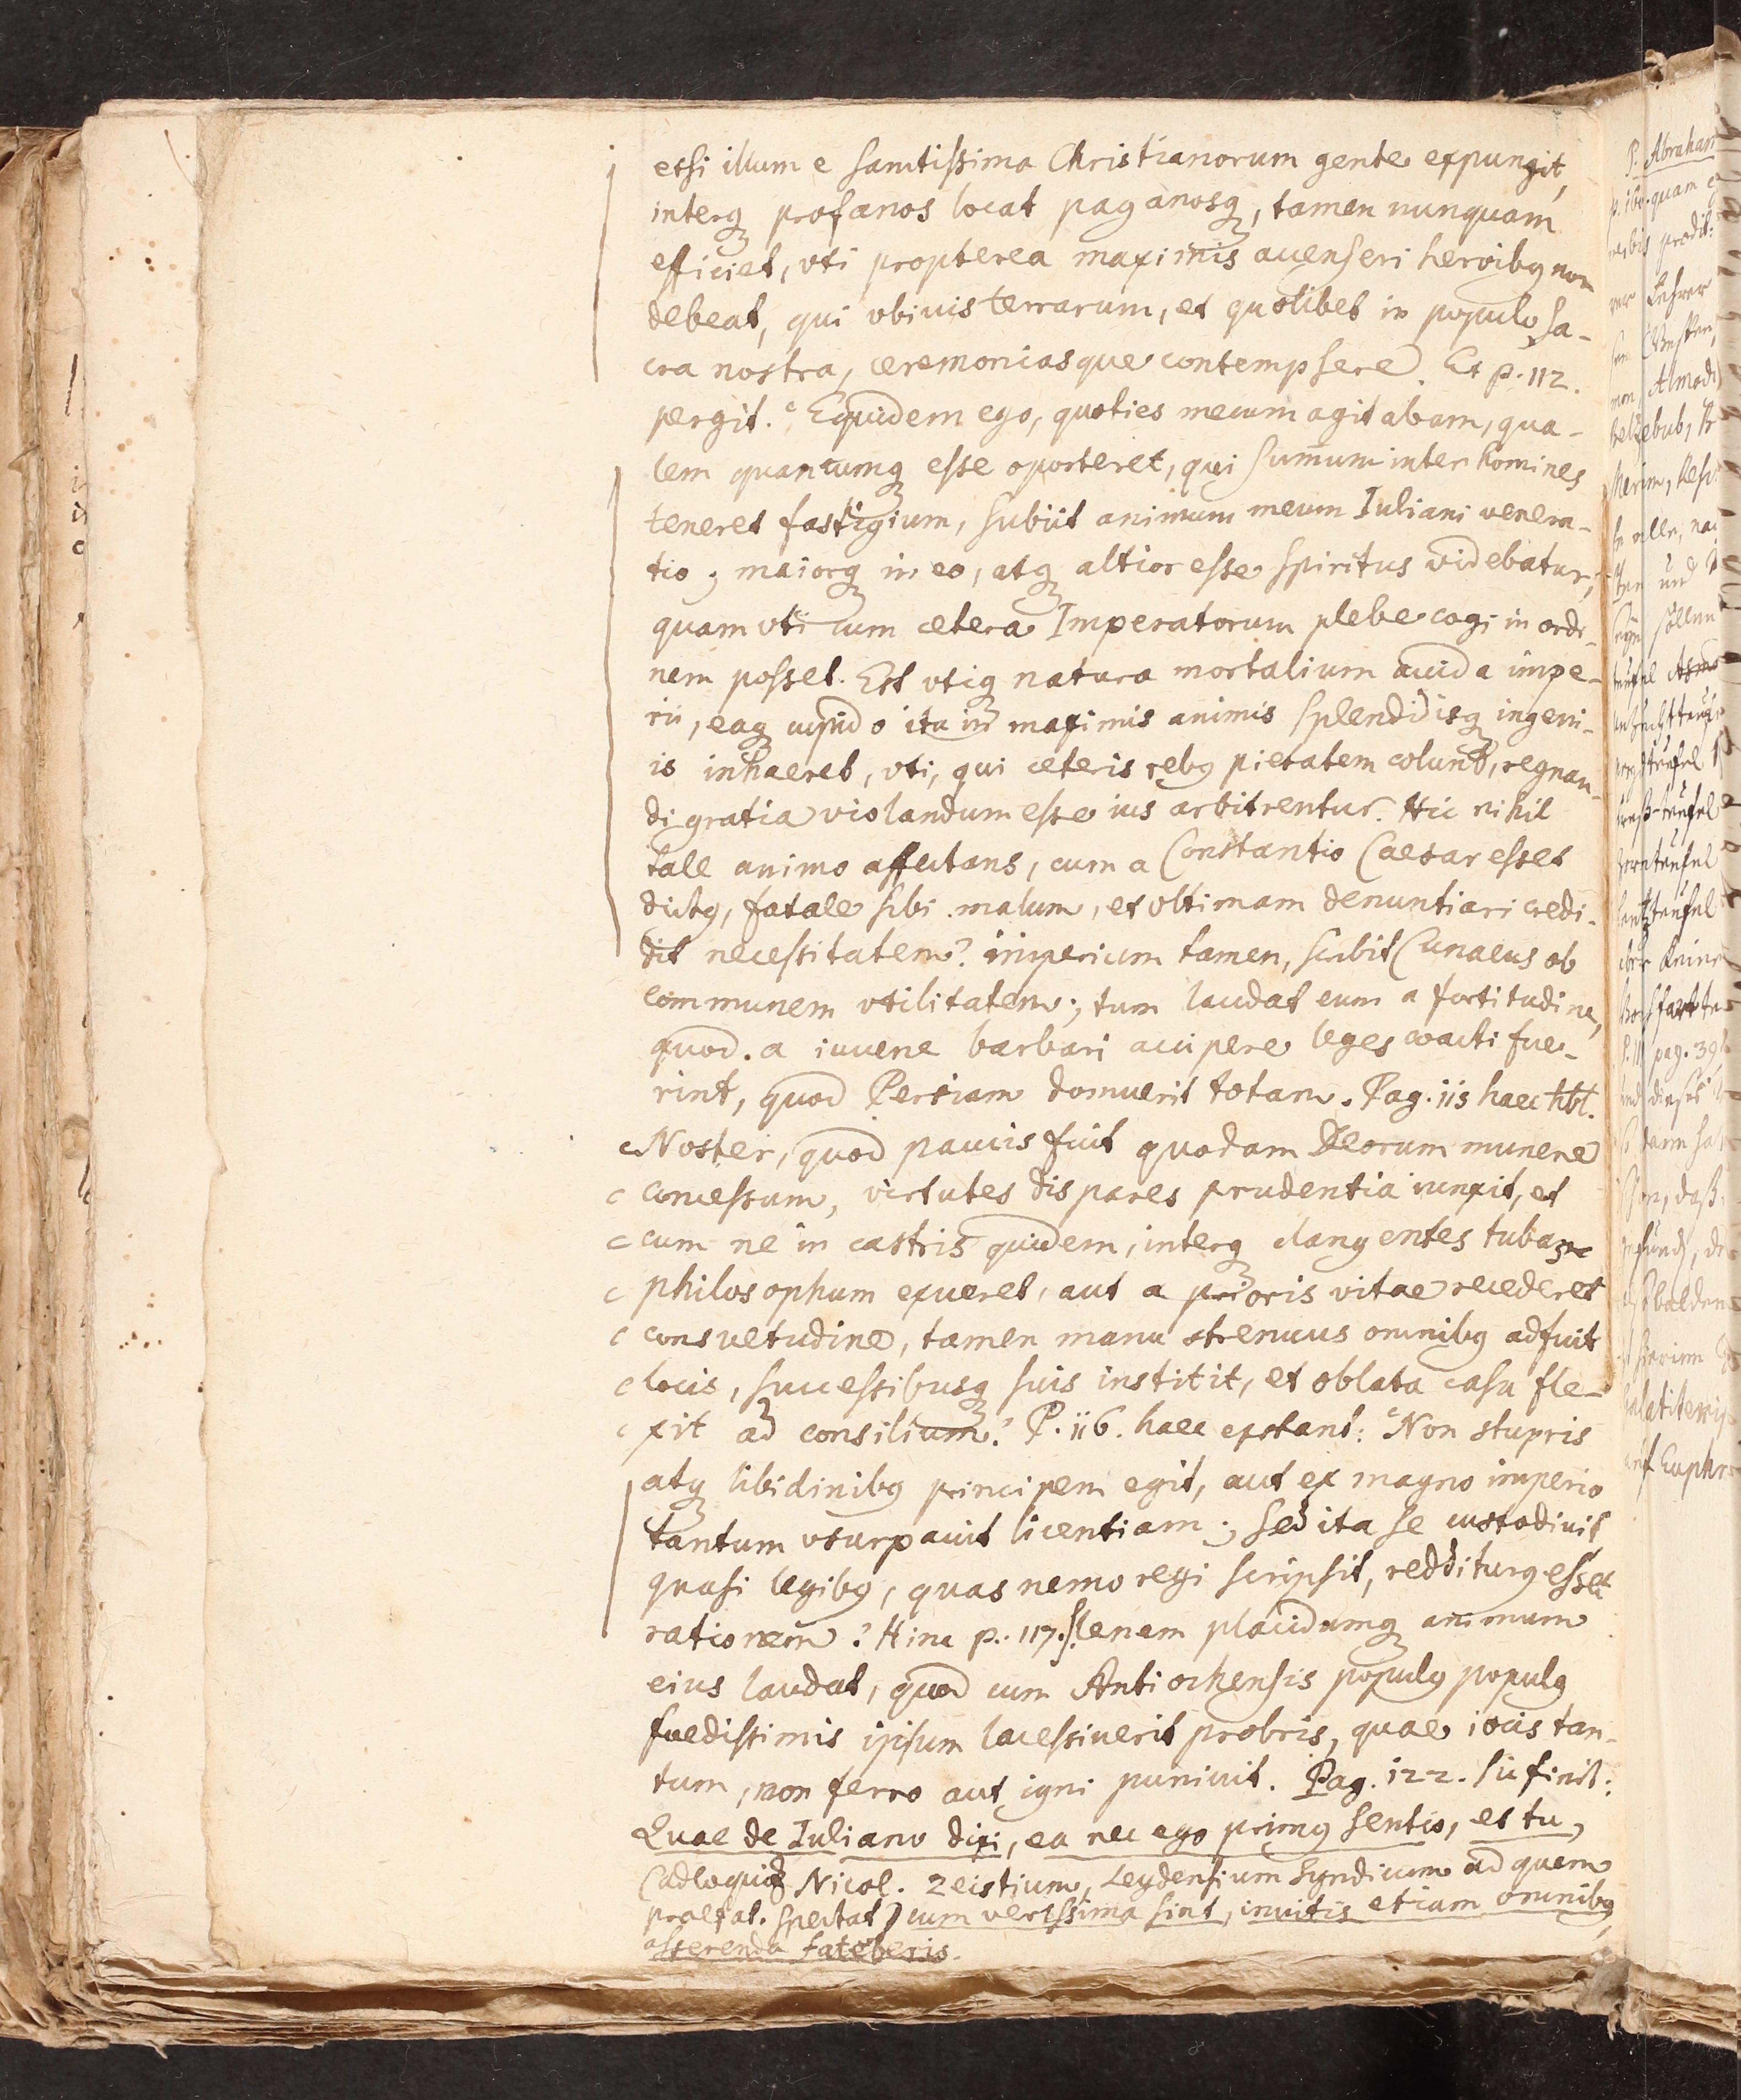 etsi illum e sanctissima Christianorum gente expungit,
interq profanos locat paganosq, tamen nunquam
efficiet, vti propterea maximis accenseri heroibq non
debeat, qui vbivis terrarum, et quolibet in populo sa-
cra nostra, ceremoniasque contempsere. Et p. 112.
pergit. Equidem ego, quoties mecum agitabam, qua-
lem quantumq esse oporteret, qui summum inter homines
teneret fastigium, subiit animum meum Iuliani venera-
tio; maiorq in eo, atq altior esse spiritus videbatur,
quam vti cum cetera Imperatorum plebe cogi in ordi-
nem posset. Est vtiq natura mortalium avida impe-
rii, eaq cupido ita in maximis animis splendidisq ingeni-
is inhaeret, vti, qui ceteris rebq pietatem colunt, regnan-
di gratia violandum esse ius arbitrentur. Hic nihil
tale animo affectans, cum a Constantio Caesar esset
dictq, fatale sibi malum, et vltimam denuntiari credi-
dit necessitatem? imperium tamen, scribit Cunaeus ob
communem vtilitatem; tum laudat eum a fortitudine,
quod a iuvene barbari accipere leges coacti fue-
rint, quod Persiam domuerit totam. Pag. 115 haec hbt.
Noster, quod paucis fuit quodam Deorum munere
concessum, virtutes dispares prudentia iunxit, et
cum ne in castris quidem, interq clangentes tubas
philosophum exueret, aut a prioris vitae recederet
consvetudine, tamen manu strenuus omnibq adfuit
locis, successibusq suis institit, et oblata casu fle-
xit ad consilium? P. 116. haec exstant: Non stupris
atq libidinibq principem egit, aut ex magno imperio
tantum vsurpavit licentiam; sed ita se custodivit,
quasi legibq, quas nemo regi scripsit, redditurq esset
rationem? Hinc p. 117. lenem placidumq animum
eius laudat, quod cum Antiochensis populq populq
foedissimis ipsum lacessiverit probris, quae iocis tan-
tum, non ferro aut igni punivit. Pag. 122. sic finit:
Quae de Iuliano dixi, ea nec ego primq sentio, et tu,
(adloquit Nicol. Zeistium, Leydensium Syndicum ad quem
praefat. spectat) cum verissima sint, invitis etiam omnibq,
asserenda fateberis.